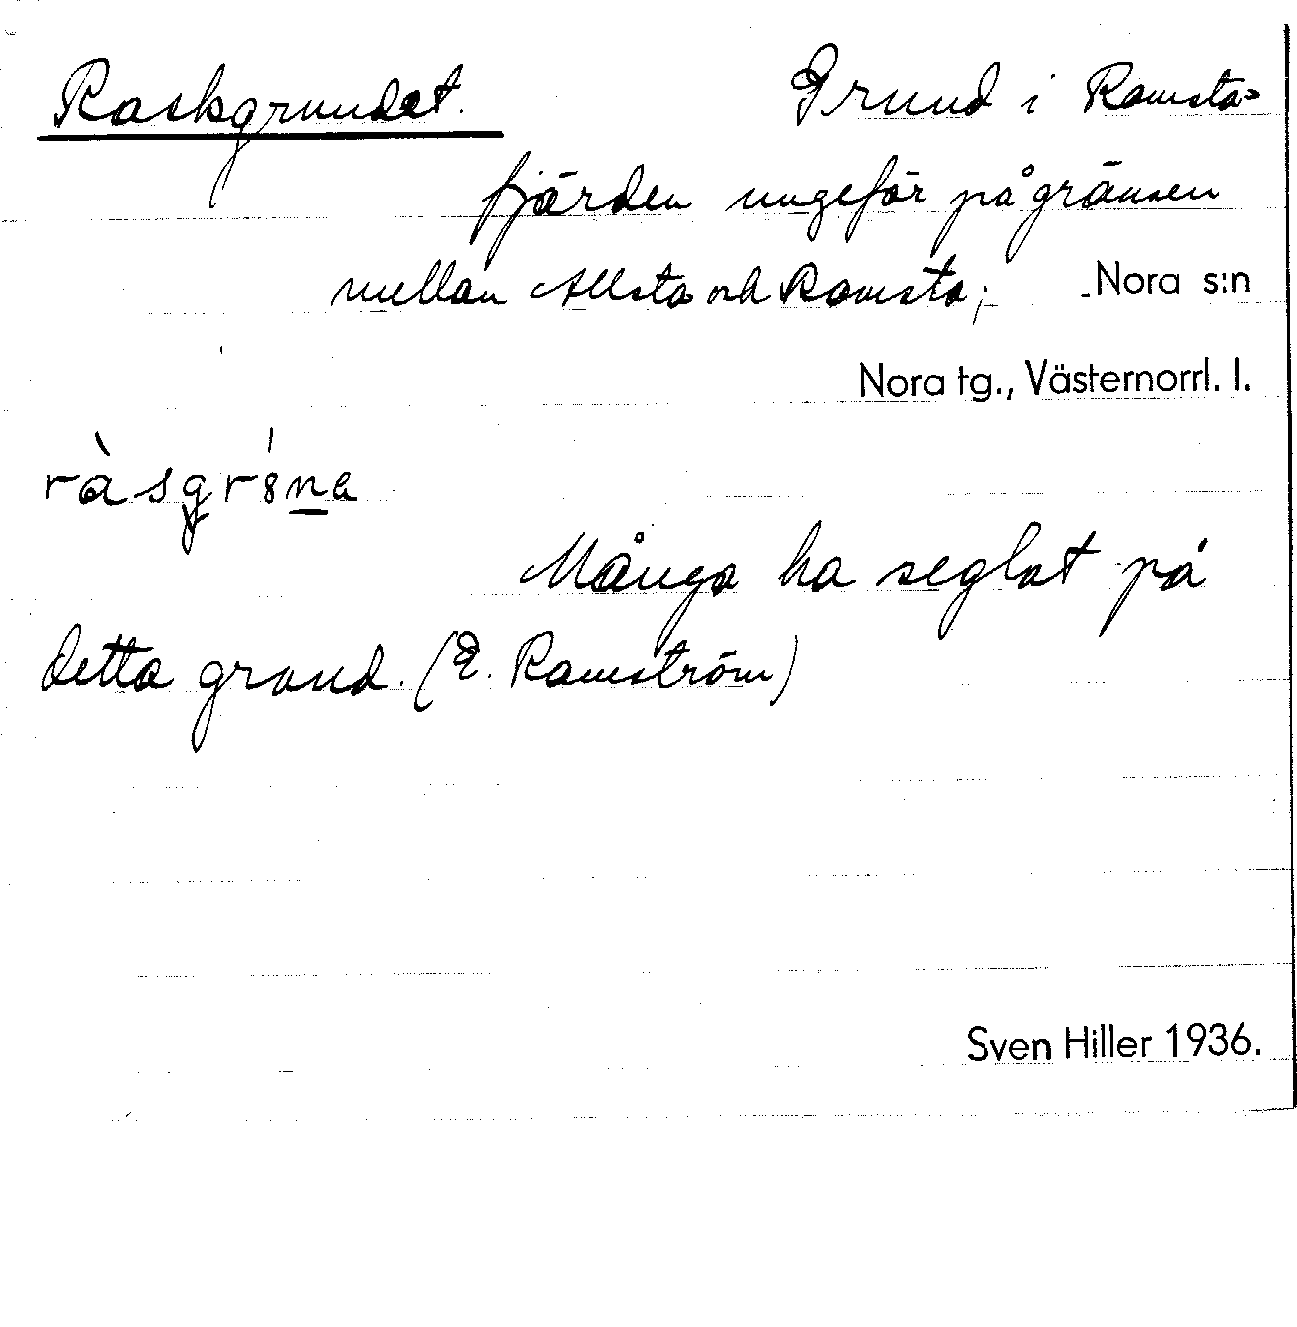 Raskgrundet. Grund i Ramsta=
fjärden ungefär på gränsen
mellan Allsta och Ramsta; Nora s:n
Nora tg., Västernorrl. l.
Många ha seglat på
detta grund. (E. Ramström)
Sven Hiller 1936.